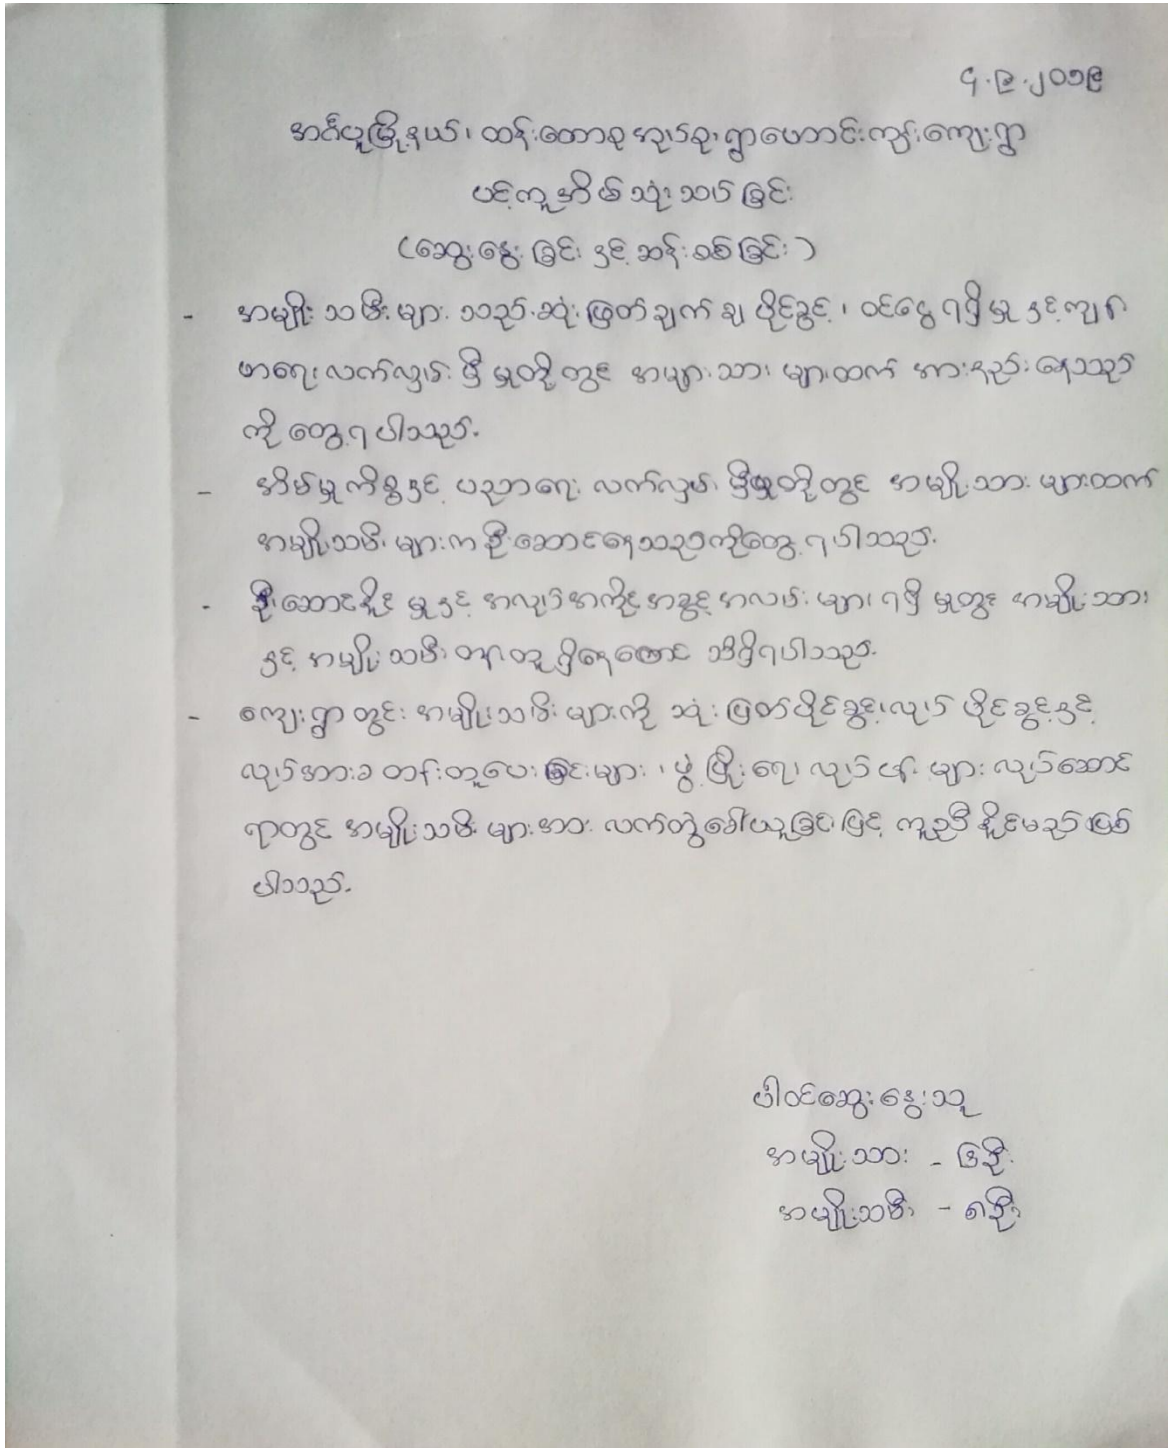 ၄.၉.၂၀၁၉
အင်္ဂပူမြို့နယ်၊ ထန်းတောစု အုပ်စု၊ ရွာဟောင်းကျွန်းကျေးရွာ
ပင့်ကူအိမ်သုံးသပ်ခြင်း
(ဆွေးနွေးခြင်းနှင့် ဆန်းစစ်ခြင်း)
- အမျိုးသမီးများသည် ဆုံးဖြတ်ချက်ချပိုင်ခွင့်၊ ဝင်ငွေရရှိမှုနှင့်ကျန်း
မာရေးလက်လှမ်းမှီမှုတို့တွင် အမျာ:သားများထက် အားနည်းနေသည်
ကို တွေ့ရပါသည်.
- အိမ်မှုကိစ္စနှင့် ပညာရေး လက်လှမ်းမှီမှုတို့တွင် အမျိုးသားများထက်
အမျိုးသမီးများကဦးဆောင်နေသည်ကိုတွေ့ရပါသည်.
- ဦးဆောင်နိုင်မှုနှင့် အလုပ်အကိုင်အခွင့်အလမ်းများရရှိမှုတွင် အမျိုးသား
နှင့် အမျိုးသမီး တန်းတူရှိနေကြောင်း သိရှိရပါသည်.
- ကျေးရွာတွင်း အမျိုးသမီးများကို သုံးဖြတ်ပိုင်ခွင့်၊လုပ်ပိုင်ခွင့်နှင့်
လုပ်အားခ တန်းတူပေးခြင်းများ၊ ဖွံ့ဖြိုးရေးလုပ်ငန်းများ လုပ်ဆောင်
ရာတွင် အမျိုးသမီးများအား လက်တွဲခေါ်ယူခြင်းဖြင့် ကူညီနိုင်မည်ဖြစ်
ပါသည်.
ပါဝင်ဆွေးနွေးသူ
အမျိုးသား - ၆ဦး
အမျိုးသမီး - ၈ဦး